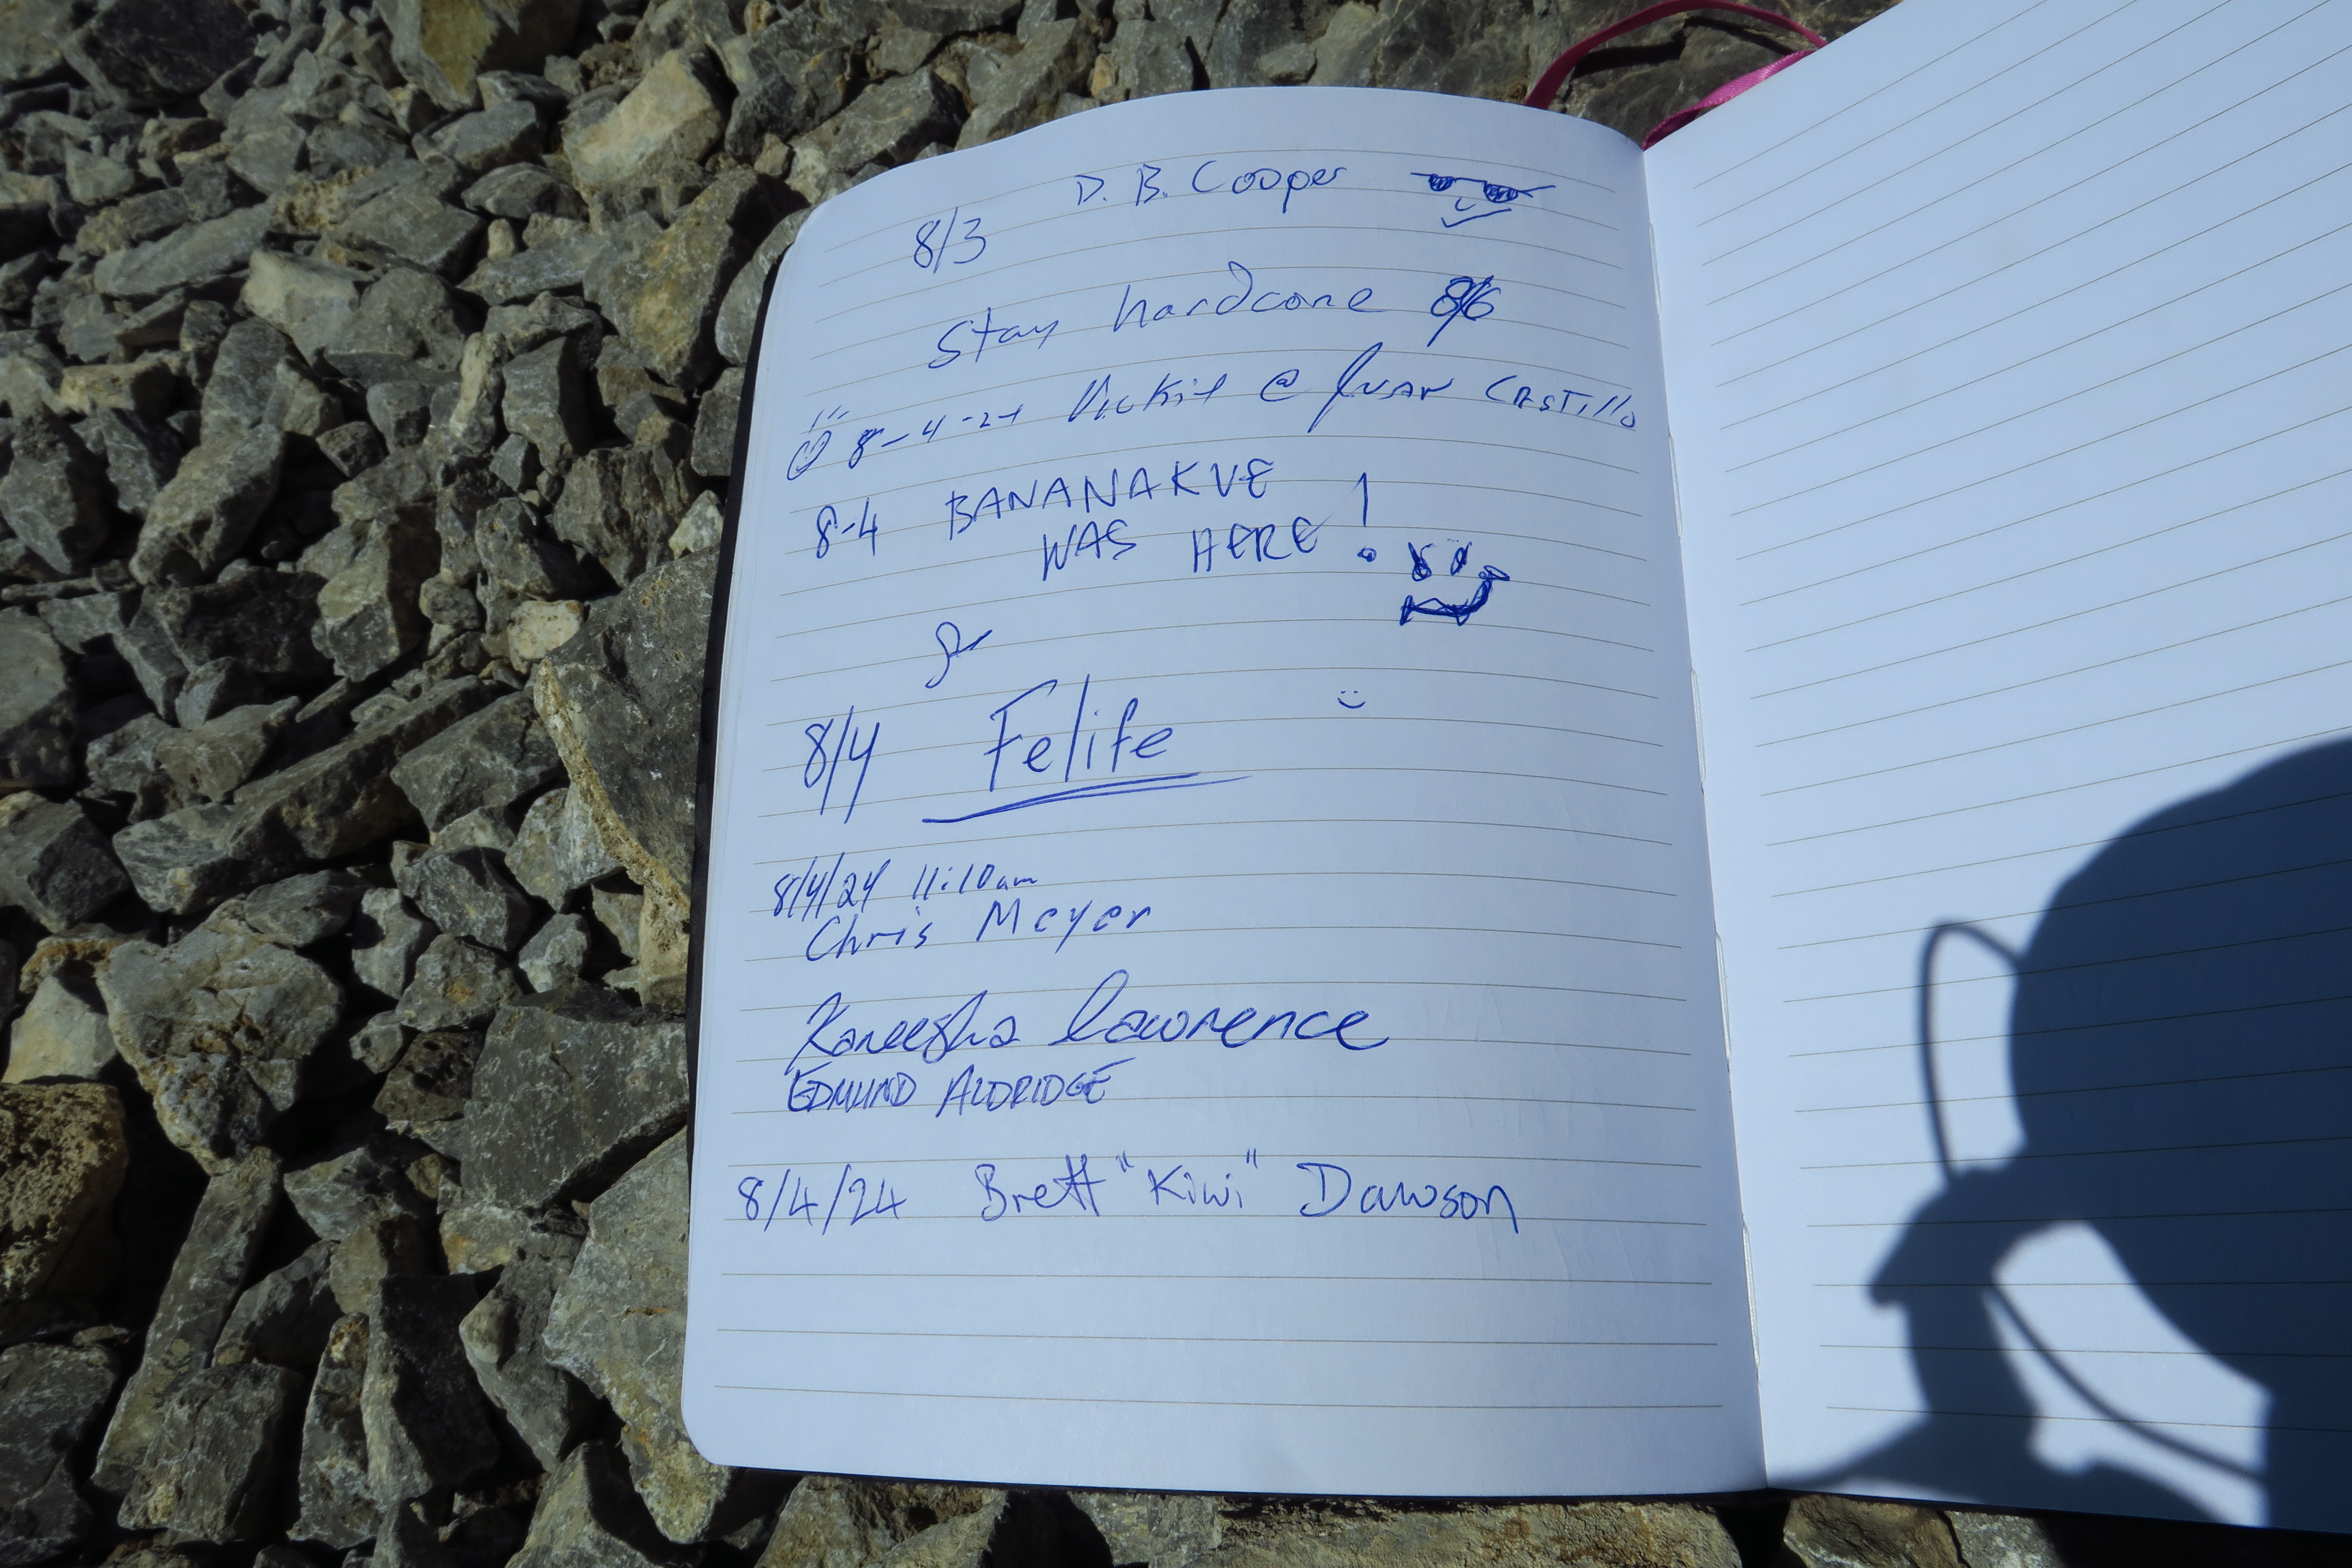 D. B. Cooper
8/3
Stay hardcore 8/6
8-4-24 @ Juan Castillo
8-4 BANANAKUE
WAS HERE!
8/4 Felife
8/4/24 11:10am
Chris Meyer
Kaneesha Lawrence
EDMUND ALDRIDGE
8/4/24 Brett "Kiwi" Dawson